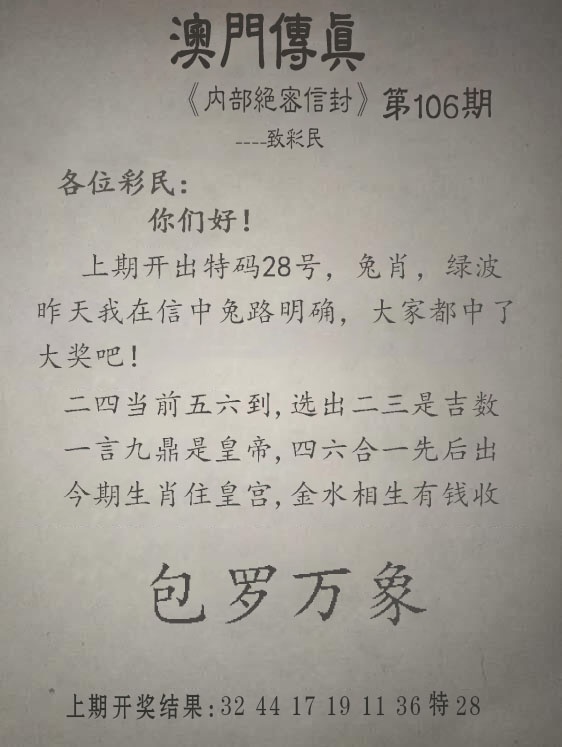 澳門傳眞
《内部絕密信封》第106期
----致彩民
各位彩民：
你们好！
上期开出特码28号，兔肖，绿波
昨天我在信中兔路明确，大家都中了
大奖吧！
二四当前五六到,选出二三是吉数
一言九鼎是皇帝,四六合一先后出
今期生肖住皇宫,金水相生有钱收
包罗万象
上期开奖结果:32 44 17 19 11 36 特 28